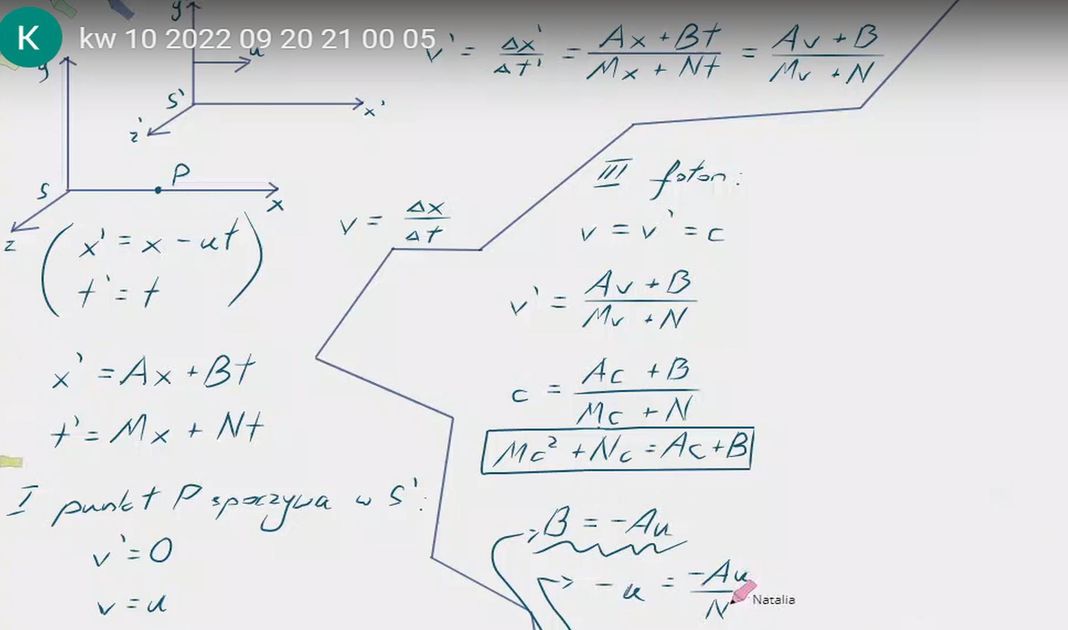 K
kw 10 2022 09 20 21 00 05
y'
u
S'
x'
z'
y
S
P
x
z
v' = Δx'/Δt' = Ax + Bt/Mx + Nt = Av + B/Mv + N
x' = x - ut
t' = t
v = Δx/Δt
x' = Ax + Bt
t' = Mx + Nt
I punkt P spoczywa w S':
v' = 0
v = u
III foton:
v = v' = c
v' = Av + B/Mv + N
c = Ac + B/Mc + N
Mc² + Nc = Ac + B
=> B = -Au
=> -u = -Au/N
Natalia